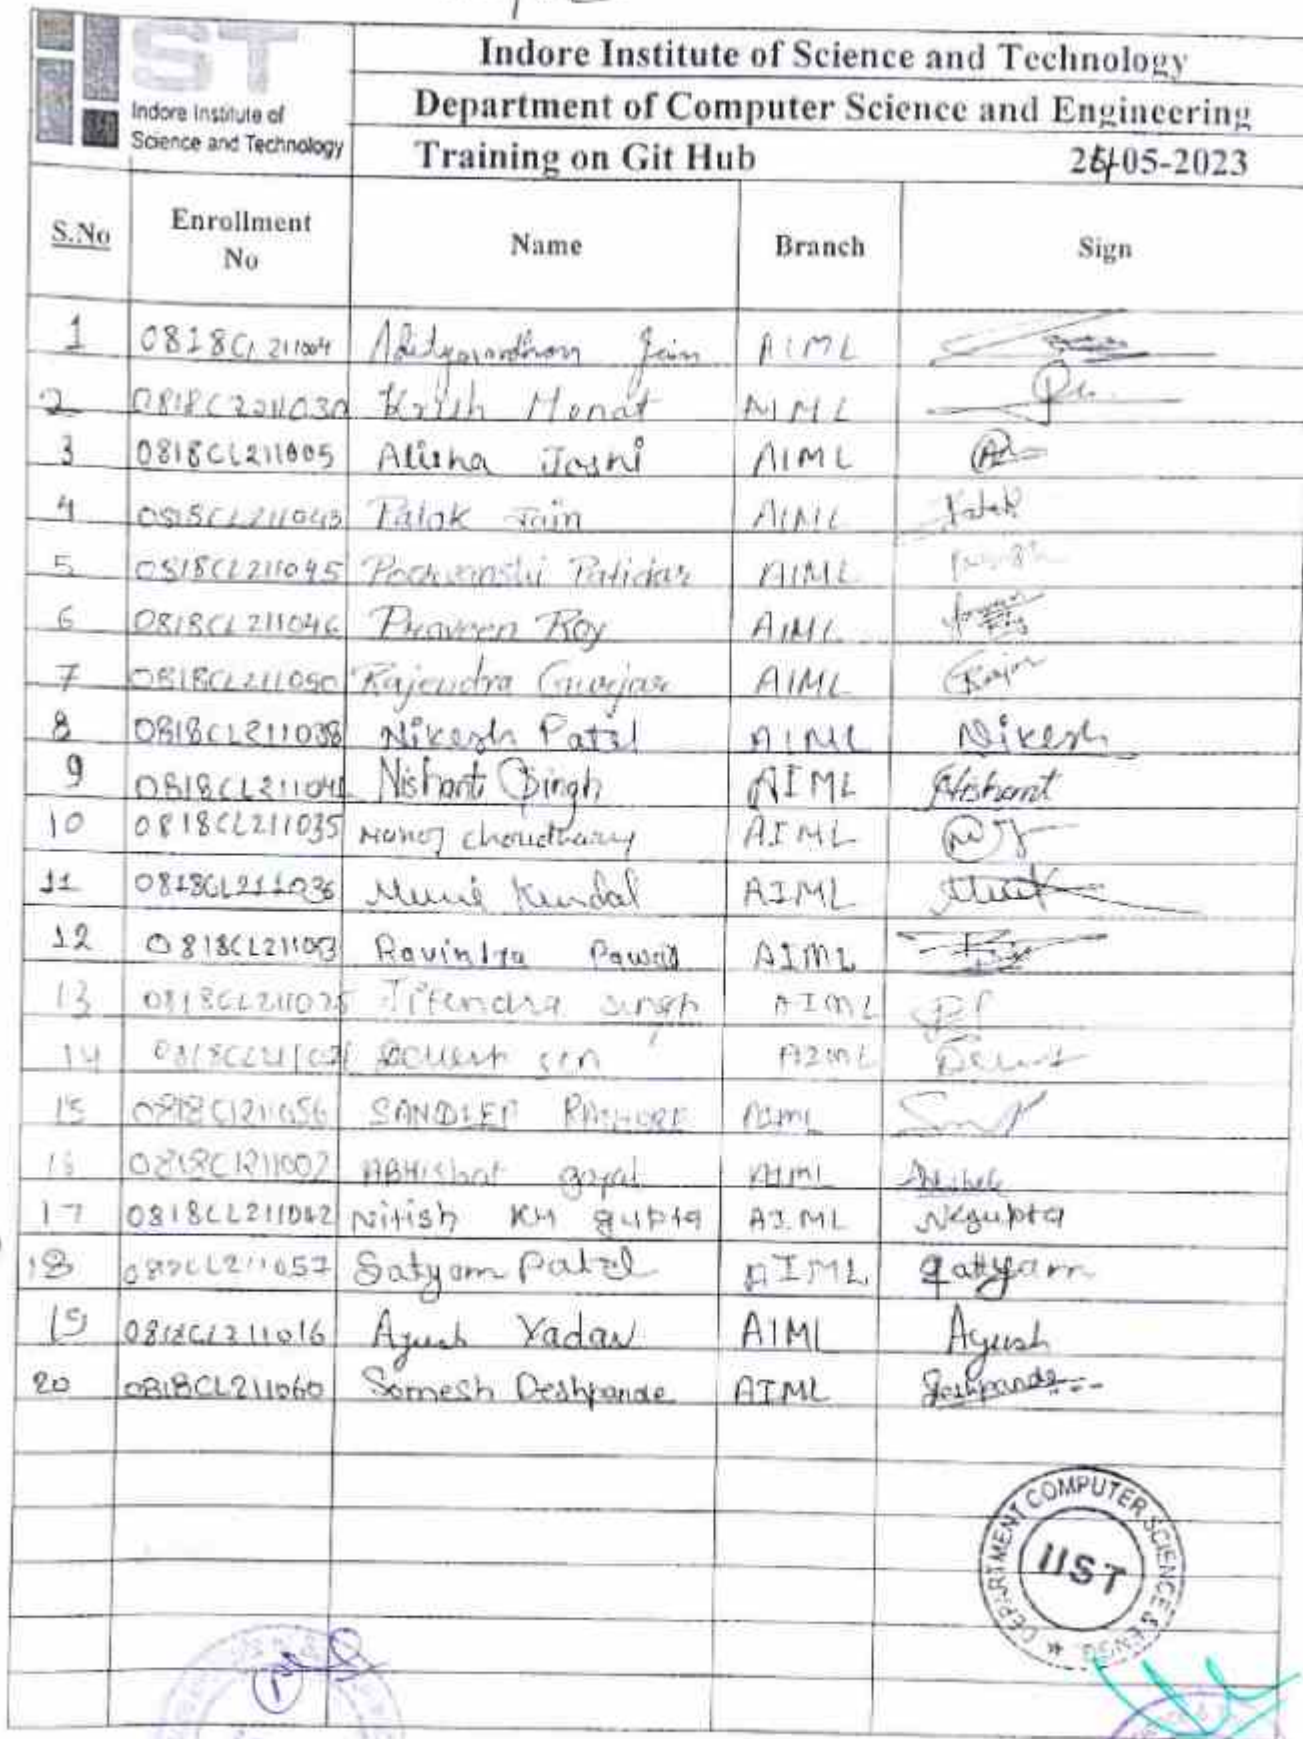 IST
Indore Institute of
Science and Technology
Indore Institute of Science and Technology
Department of Computer Science and Engineering
Training on Git Hub 05-2023
S.No Enrollment No Name Branch Sign
1 0818CL211004 Jain AIML
2 Krish AIML
3 0818CL211005 Alisha Joshi AIML
4 0818CL211043 Palak Jain AIML Palak
5 0818CL211045 Poorvanshi Patidar AIML
6 0818CL211046 Praveen Roy AIML
7 0818CL211050 Rajendra Gurjar AIML
8 0818CL211038 Nikesh Patel AIML Nikesh
9 Nishant Singh AIML Nishant
10 0818CL211035 Manoj Choudhary AIML
11 0818CL211036 AIML
12 Ravindra Pawar AIML
13 Jitendra Singh AIML
14 Sen AIML
15 0818CL211056 SANDEEP RATHORE AIML
16 0818CL211002 goyal AIML
17 0818CL211042 Nitish KM gupta AIML Nkgupta
18 0818CL211057 Satyam Patel AIML Satyam
19 0818CL211016 Ayush Yadav AIML Ayush
20 0818CL211060 Somesh Deshpande AIML Deshpande
DEPARTMENT COMPUTER SCIENCE & ENGG.
IIST